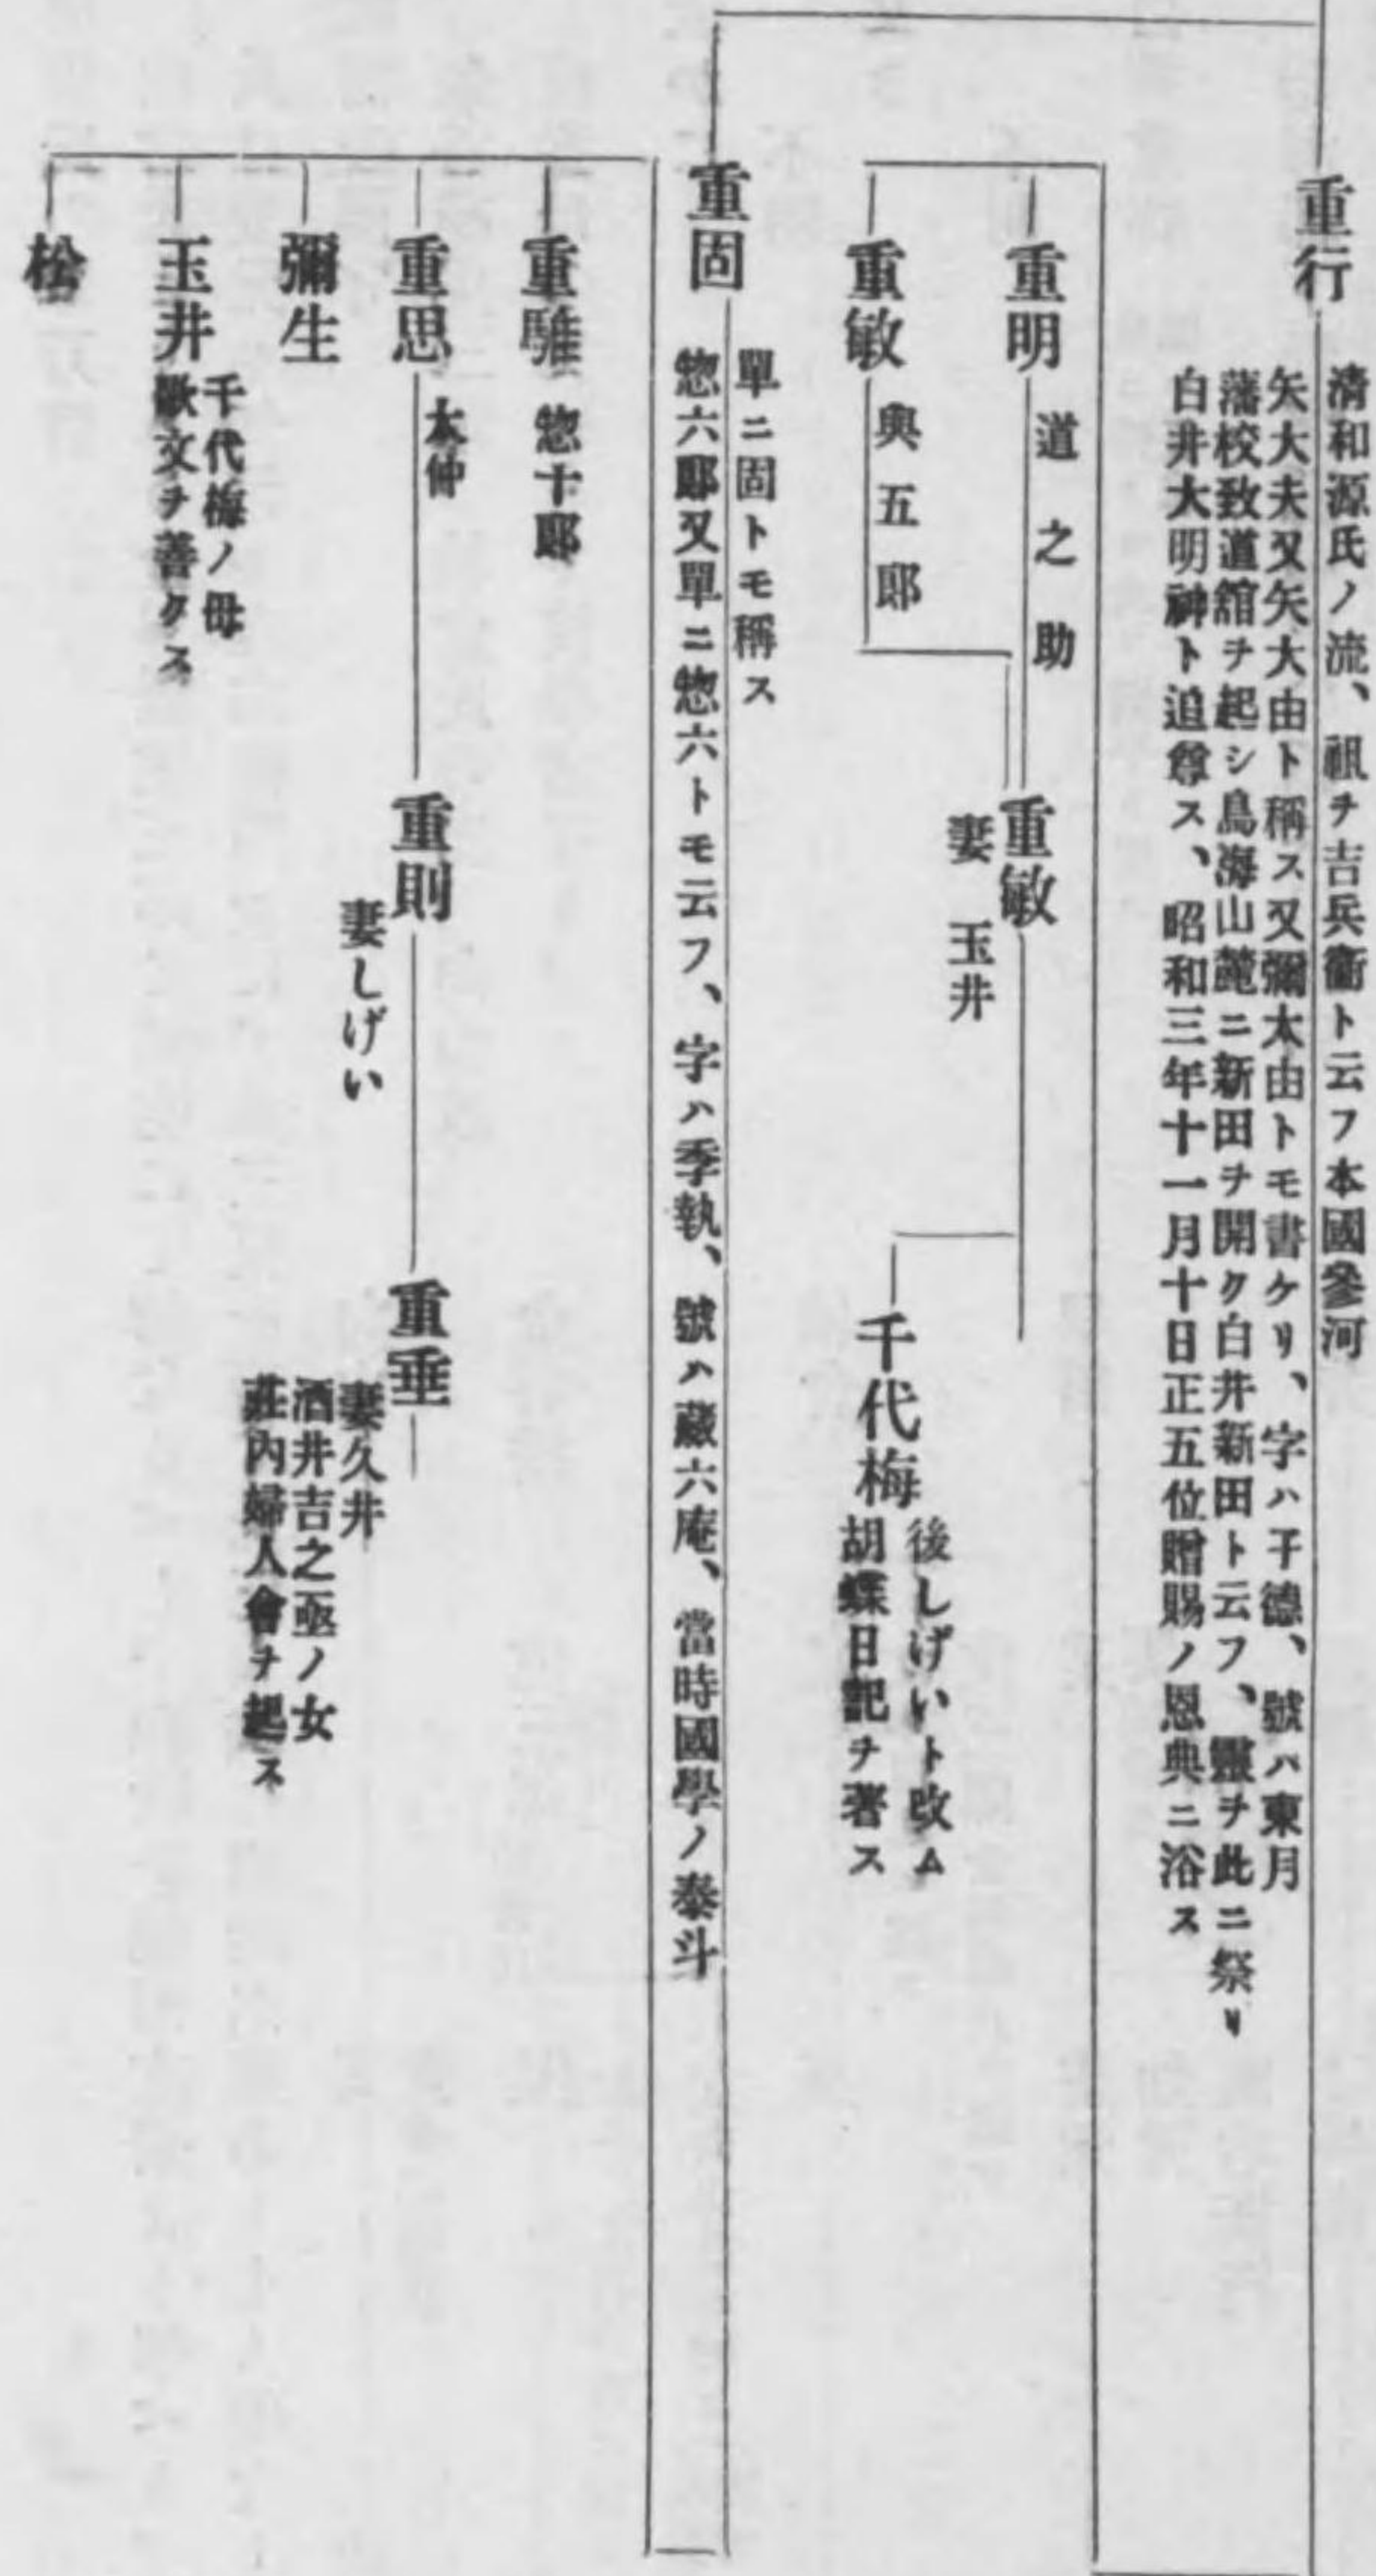 重行
清和源氏ノ流、祖ヲ吉兵衞ト云フ本國參河
矢大夫又矢大由ト稱ス又彌太由トモ書ケリ、字ハ子德、號ハ東月
藩校致道館ヲ起シ鳥海山麓ニ新田ヲ開ク白井新田ト云フ、靈ヲ此ニ祭リ
白井大明神ト追尊ス、昭和三年十一月十日正五位贈賜ノ恩典ニ浴ス
重明
道之助
重敏
妻 玉井
重敏
與五郎
千代梅
後しげいト改ム
胡蝶日記ヲ著ス
重固
單ニ固トモ稱ス
惣六郎又單ニ惣六トモ云フ、字ハ季執、號ハ藏六庵、當時國學ノ泰斗
重騅
惣十郎
重思
太仲
重則
妻しげい
重垂
妻久井
酒井吉之亟ノ女
莊內婦人會ヲ起ス
彌生
玉井
千代梅ノ母
歌文ヲ善クス
松